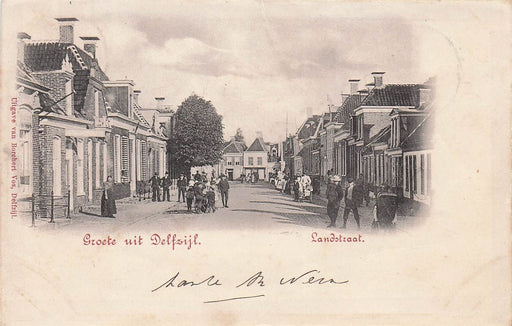 Uitgave van Bombert Vos, Delfzijl.
Groete uit Delfzijl.
Landstraat.